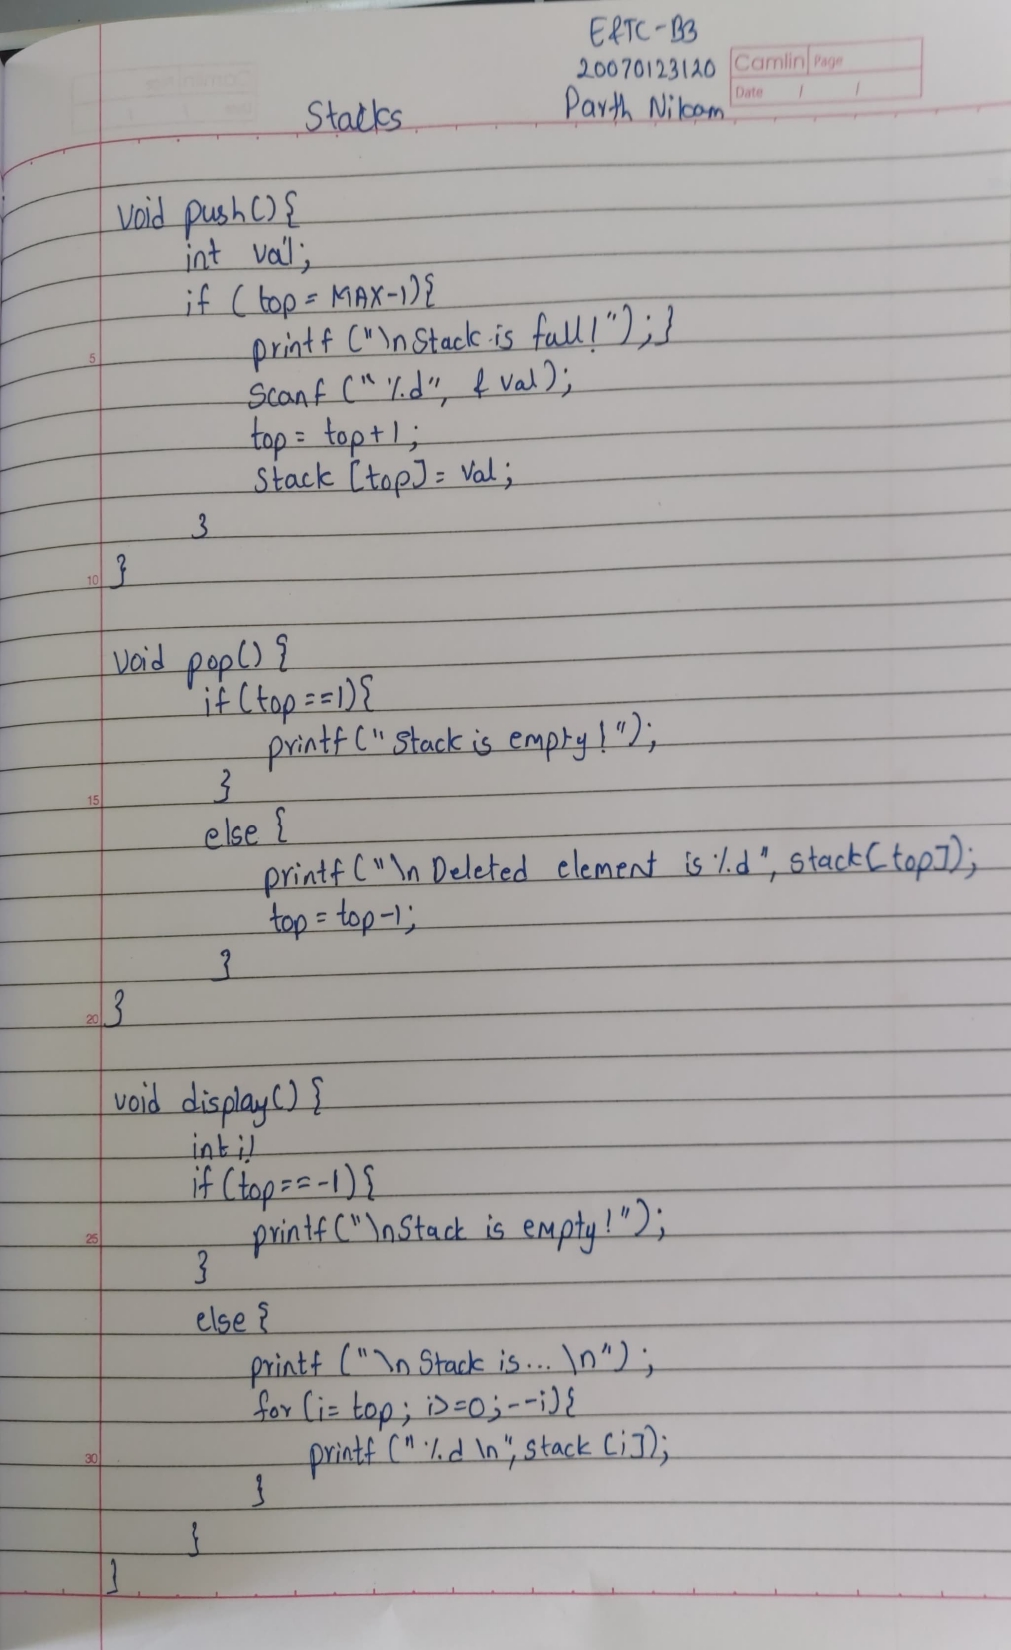 E&TC-B3
20070123120
Camlin Page
Date / /
Parth Nikam
Stacks
void push(){
int val;
if (top = MAX-1){
printf ("\nStack is full!");}
5
Scanf ("%d", &val);
top = top+1;
Stack [top] = val;
}
10 }
void pop() {
if(top==1){
printf("Stack is empty!");
}
15
else {
printf("\n Deleted element is %d", stack[top]);
top = top-1;
}
20 }
void display() {
int i;
if (top==-1){
printf("\nStack is empty!");
25
}
else {
printf ("\n Stack is... \n");
for (i= top; i>=0;--i){
printf ("%d \n", stack [i]);
30
}
}
}